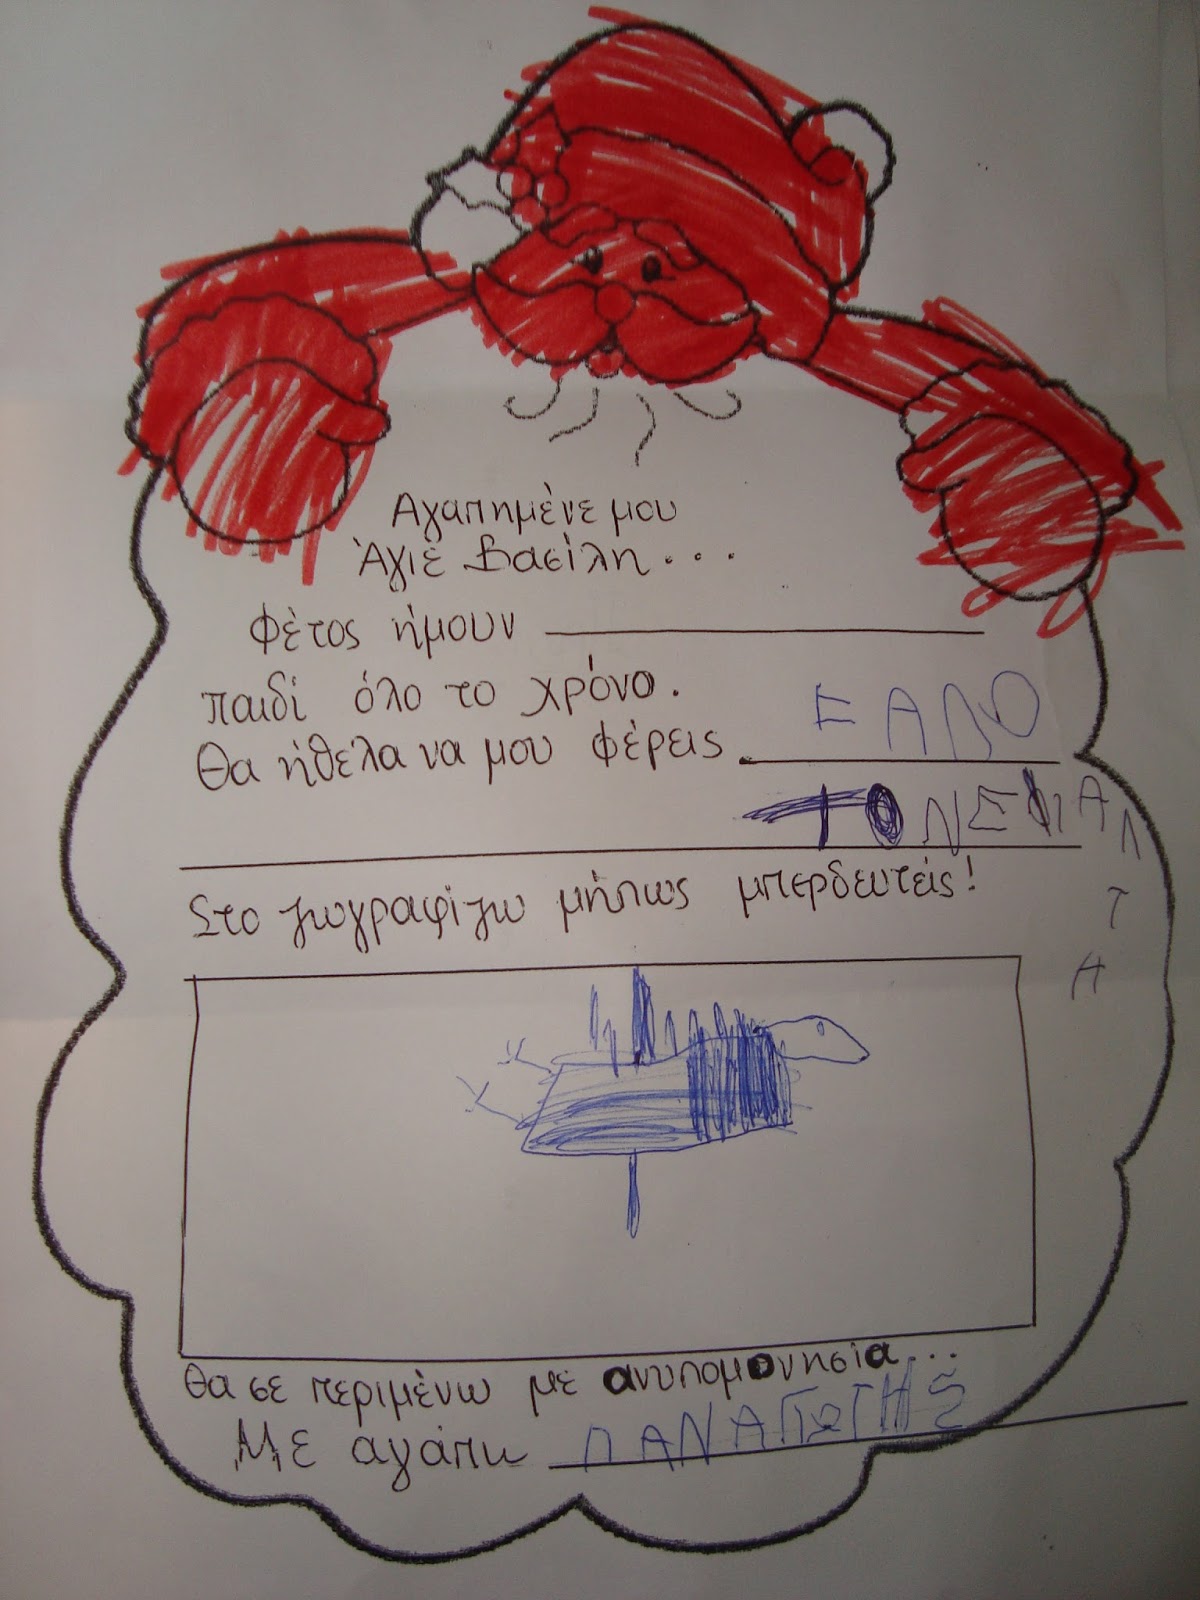 Αγαπημένε μου
Άγιε Βασίλη...
Φέτος ήμουν
παιδί όλο το χρόνο.
Θα ήθελα να μου φέρεις
ΤΟΝΕΦΙΑΛΤΗ
Στο ζωγραφίζω μήπως μπερδευτείς!
Θα σε περιμένω με ανυπομονησία...
Με αγάπη ΠΑΝΑΓΙΩΤΗΣ